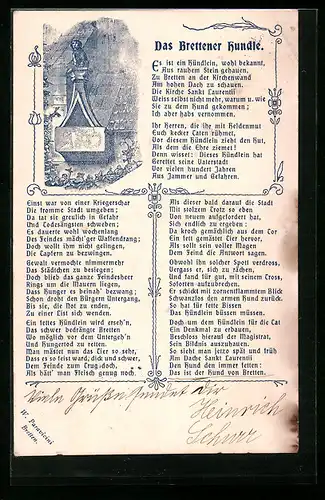 Das Brettener Hundle.
Es ist ein Hündlein, wohl bekannt,
Aus rauhem Stein gehauen,
Zu Bretten an der Kirchenwand
Am hohen Dach zu schauen.
Die Kirche Sankt Laurentii
Weiss selbst nicht mehr, warum u. wie
Sie zu dem Hund gekommen;
Ich aber habs vernommen.
Ihr Herren, die ihr mit Heldenmut
Euch kecker Taten rühmet,
Vor diesem Hündlein zieht den Hut,
Als dem die Ehre ziemet!
Denn wisset: Dieses Hündlein hat
Gerettet seine Vaterstadt
Vor vielen hundert Jahren
Aus Jammer und Gefahren.
Einst war von einer Kriegerschar
Die fromme Stadt umgeben;
Da tat sie greulich in Gefahr
Und Todesängsten schweben;
Es dauerte wohl wochenlang
Des Feindes mächt'ger Waffendrang;
Doch wollt ihm nicht gelingen,
Die Tapfern zu bezwingen.
Gewalt vermochte nimmermehr
Das Städtchen zu besiegen;
Doch blieb das ganze Feindesheer
Rings um die Mauern liegen,
Dass Hunger es beinah' bezwang;
Schon droht den Bürgern Untergang,
Bis sie, die Not zu enden,
Zu einer List sich wenden.
Ein fettes Hündlein wird erseh'n,
Das schwer befrachte Breiten
Wo möglich vor dem Untergeh'n
Und Hungertod zu retten.
Man mästet nun das Tier so sehr,
Dass es so feist ward, dick und schwer,
Dem Feinde zum Trug doch,
Als hätt' man Fleisch genug noch.
Als dieser bald darauf die Stadt
Mit stolzem Trotz so eben
Von neuem aufgefordert hat,
Sich endlich zu ergeben:
Da kroch gemächlich aus dem Tor
Ein fett gemästet Tier hervor,
Als sollt sein voller Magen
Dem Feind die Antwort sagen.
Obwohl ihn solcher Spott verdross,
Vergass er, sich zu rächen,
Und fand für gut, mit seinem Tross,
Sofort aufzubrechen.
Er schickt mit zornentflammtem Blick
Schwanzlos den armen Hund zurück.
So hat für fette Bissen
Das Hündlein büssen müssen.
Doch um dem Hündlein für die Tat
Ein Denkmal zu erbauen,
Beschloss hierauf der Magistrat,
Sein Bildnis auszuhauen.
So sieht man jetzo spät und früh
Am Dache Sankt Laurentii
Den Hund den immer fetten:
Das ist der Hund von Bretten.
Viele Grüße sendet Dir
Heinrich
W. Paravicini
Bretten.